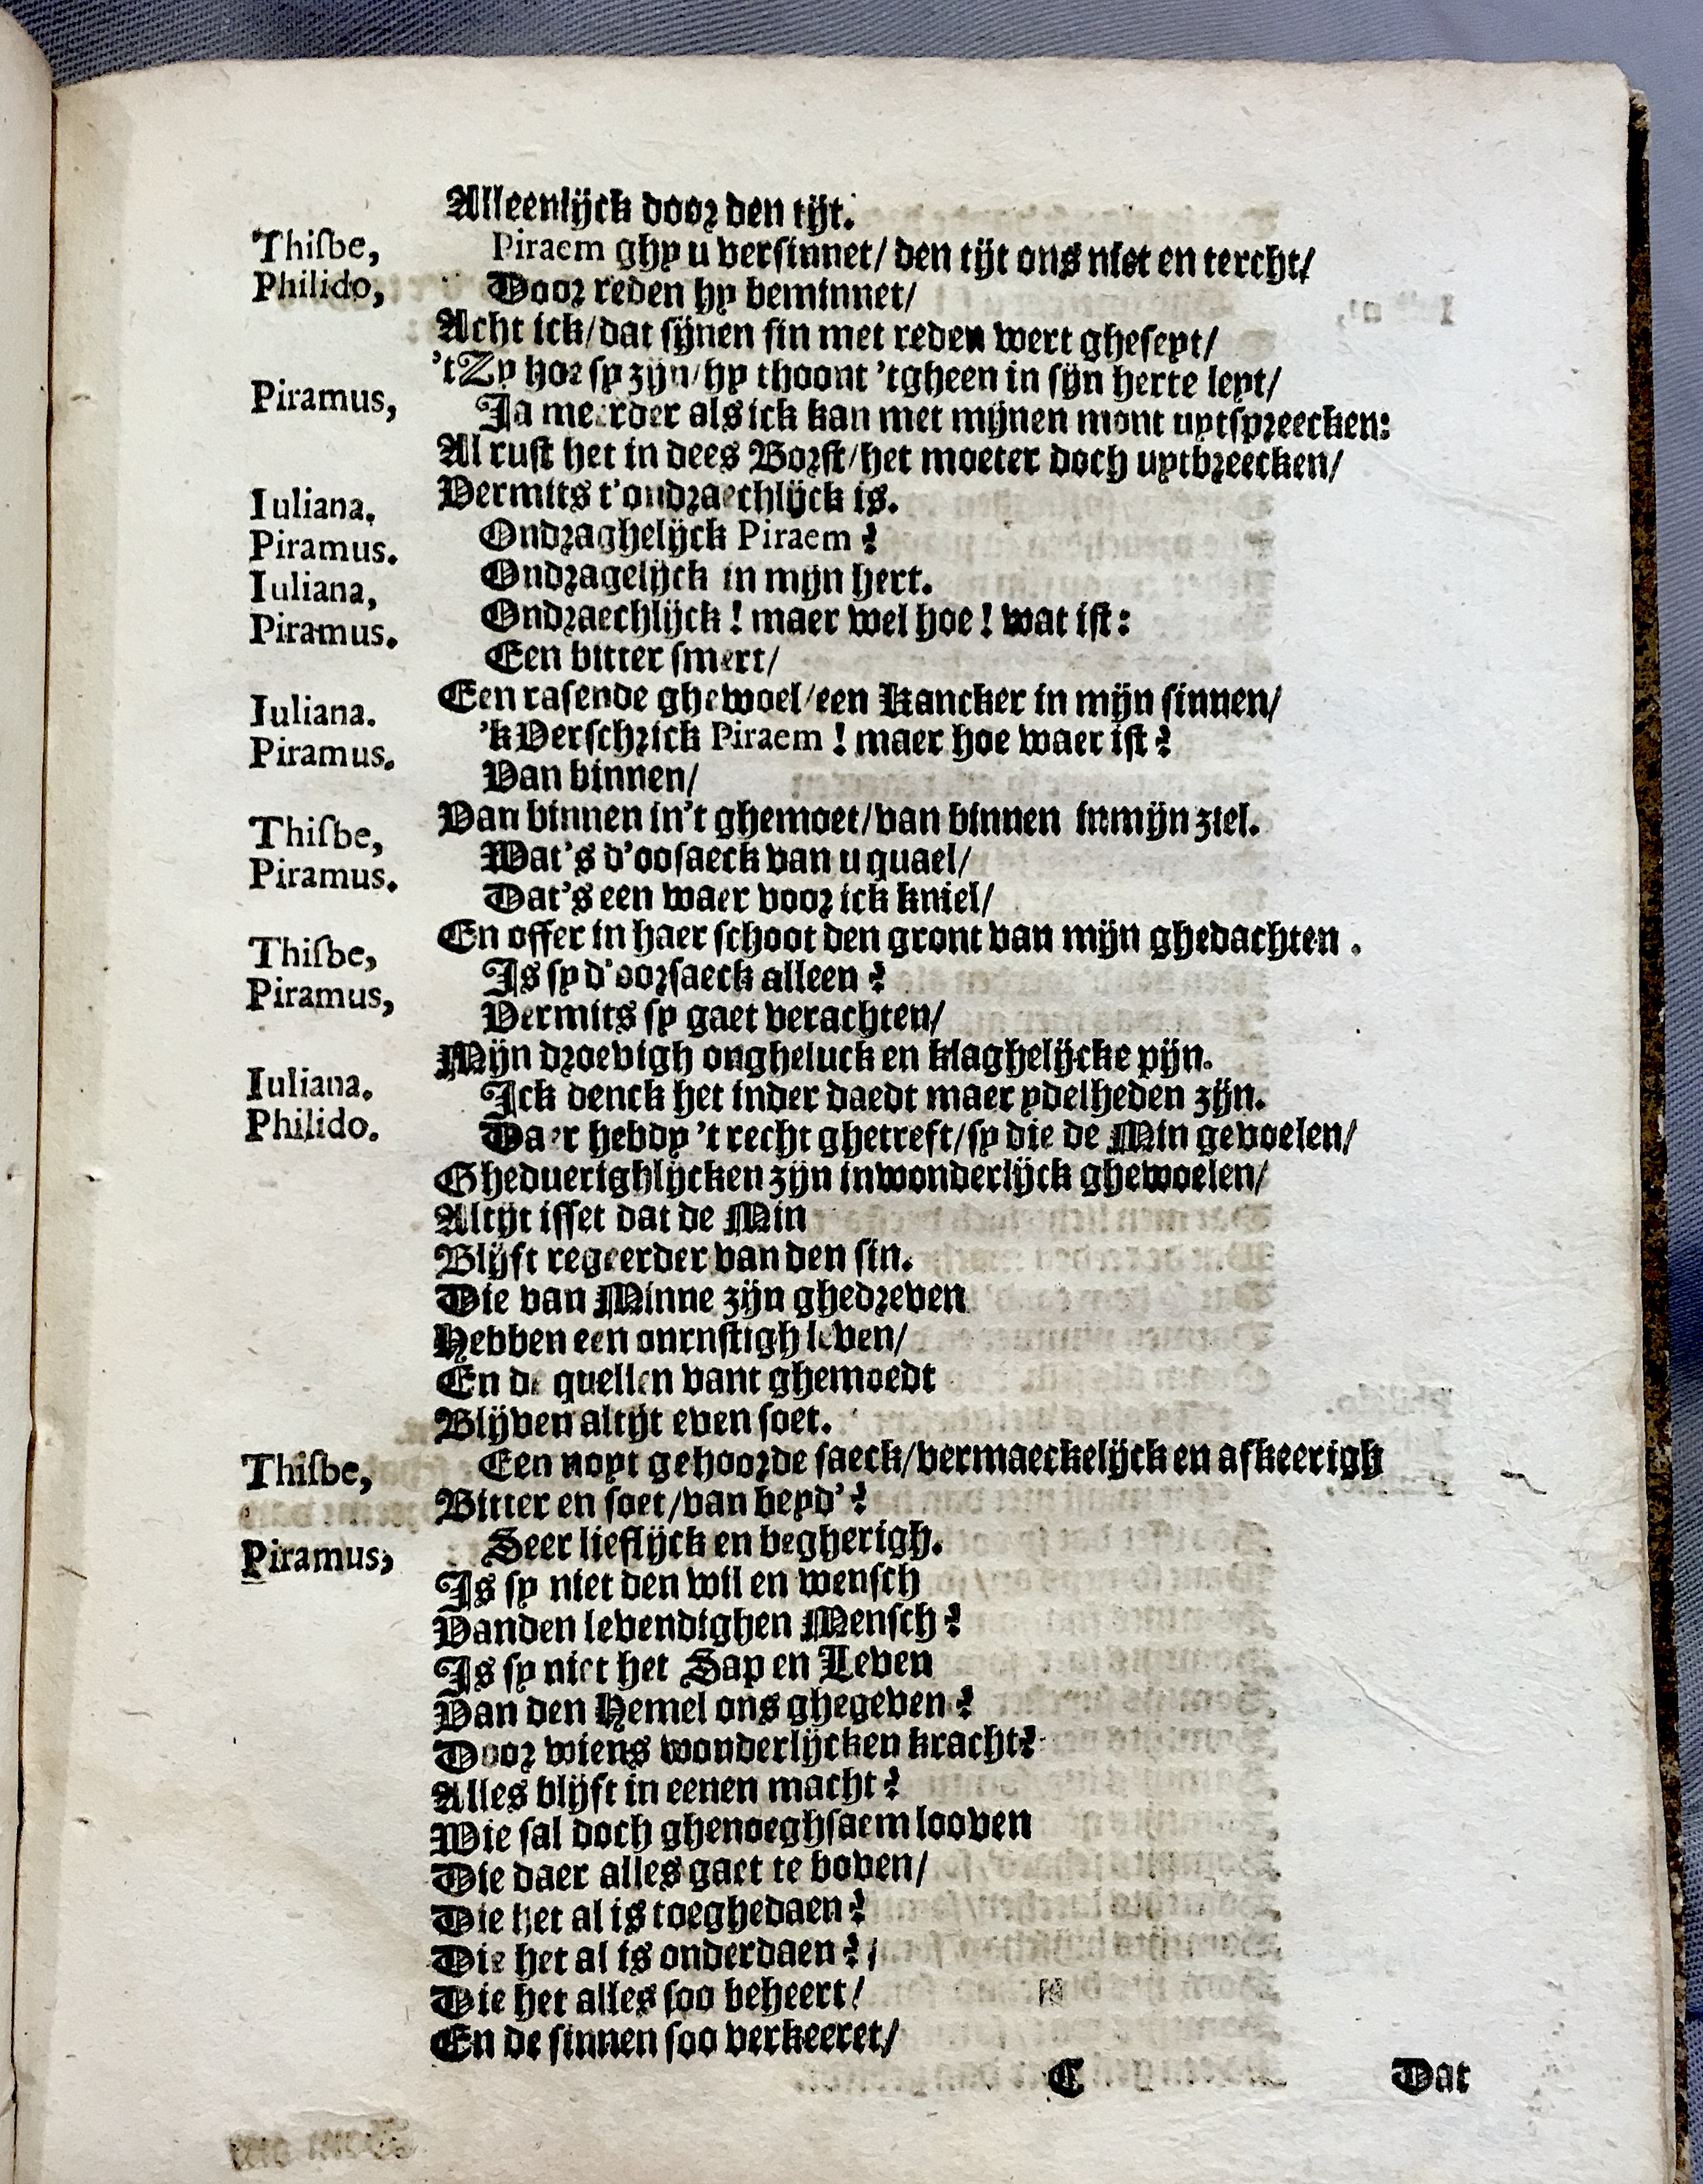 Alleenlijck door den tijt.
Thiſbe, Piraem ghy u verſinnet/ den tijt ons niet en tercht/
Philido, Door reden hy beminnet/
Acht ick/dat ſijnen ſin met reden wert gheſeyt/
'tZy hoe ſy zijn/hy thoont 'tgheen in ſijn herte leyt/
Piramus, Ja meerder als ick kan met mijnen mont uytſpreecken:
Al ruſt het in dees Borſt/het moeter doch uytbreecken/
Vermits t'ondraechlijck is.
Iuliana. Ondraghelijck Piraem?
Piramus. Ondragelijck in mijn hert.
Iuliana, Ondraechlijck! maer wel hoe! wat iſt:
Piramus. Een bitter ſmert/
Een raſende ghewoel/een Kancker in mijn ſinnen/
Iuliana. 'kVerſchrick Piraem! maer hoe waer iſt?
Piramus. Van binnen/
Van binnen in't ghemoet/van binnen in mijn ziel.
Thiſbe, Wat's d'ooſaeck van u quael/
Piramus. Dat's een waer voor ick kniel/
En offer in haer ſchoot den gront van mijn ghedachten.
Thiſbe, Is ſy d'oorſaeck alleen?
Piramus, Vermits ſy gaet verachten/
Mijn droevigh ongheluck en klaghelijcke pijn.
Iuliana. Ick denck het inder daedt maer ydelheden zijn.
Philido. Daer hebdy 't recht ghetreft/ſy die de Min gevoelen/
Gheduerighlijcken zijn in wonderlijck ghewoelen/
Altijt iſſet dat de Min
Blijft regeerder van den ſin.
Die van Minne zijn ghedreven
Hebben een onrnſtigh leven/
En de quellen vant ghemoedt
Blijven altijt even ſoet.
Thiſbe, Een noyt gehoorde ſaeck/vermaeckelijck en afkeerigh
Bitter en ſoet/van beyd'?
Piramus, Seer lieflijck en begherigh.
Is ſy niet den wil en wenſch
Vanden levendighen Menſch?
Is ſy niet het Sap en Leven
Van den Hemel ons ghegeven?
Door wiens wonderlijcken kracht?
Alles blijft in eenen macht?
Wie ſal doch ghenoeghſaem looven
Die daer alles gaet te boven/
Die het al is toeghedaen?
Die het al is onderdaen?/
Die het alles ſoo beheert/
En de ſinnen ſoo verkeeret/
C Dat